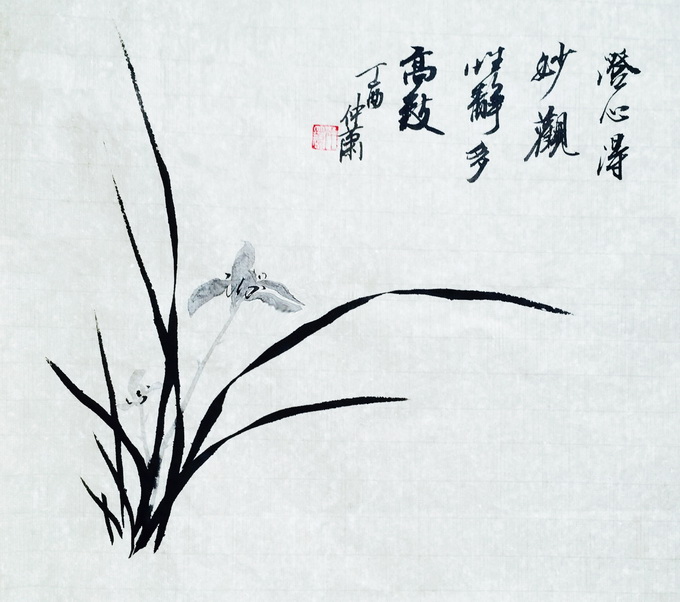 澄心得
妙觀
性靜多
高致
丁酉
仲肅